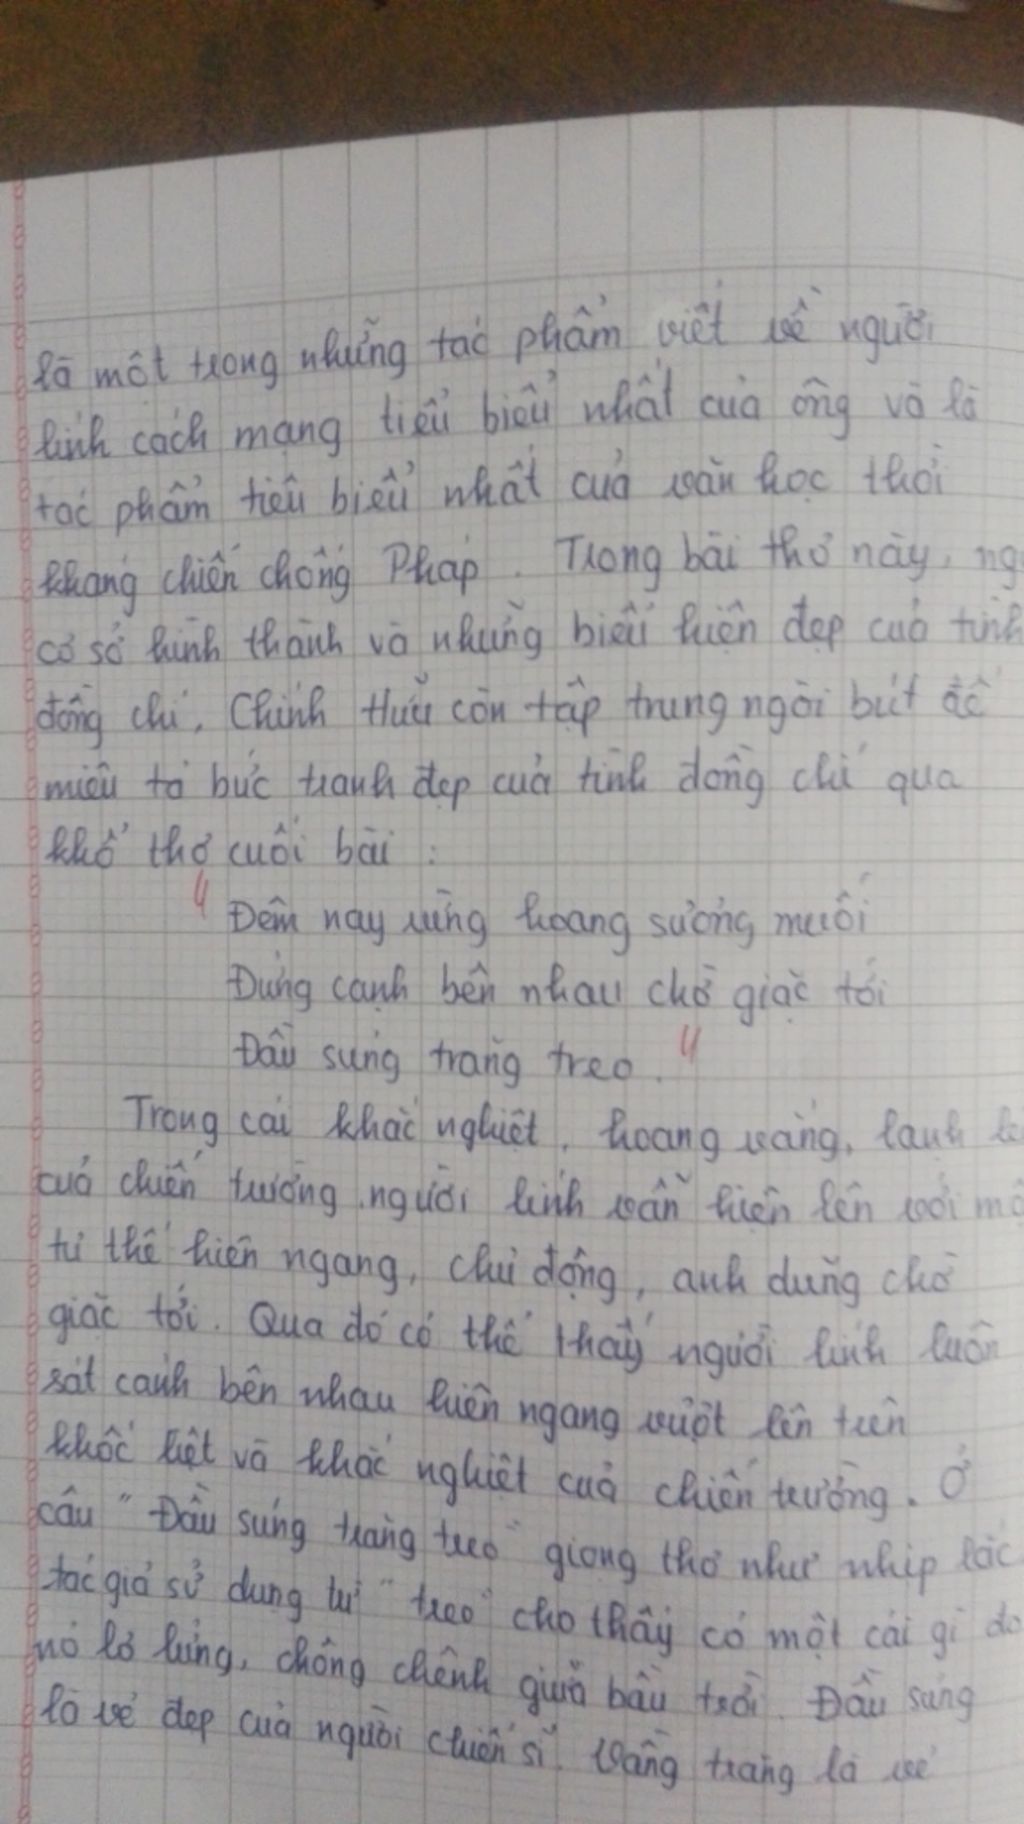 là một trong những tác phẩm viết về người
lính cách mạng tiêu biểu nhất của ông và là
tác phẩm tiêu biểu nhất của văn học thời
kháng chiến chống Pháp. Trong bài thơ này,
cơ sở hình thành và những biểu hiện đẹp của tình
đồng chí, Chính Hữu còn tập trung ngòi bút để
miêu tả bức tranh đẹp của tình đồng chí qua
khổ thơ cuối bài :
"Đêm nay rừng hoang sương muối
Đứng cạnh bên nhau chờ giặc tới
Đầu súng trăng treo."
Trong cái khắc nghiệt, hoang vắng, lạnh
của chiến trường người lính vẫn hiện lên với
tư thế hiên ngang, chủ động, anh dũng chờ
giặc tới. Qua đó có thể thấy người lính luôn
sát cánh bên nhau hiên ngang vượt lên trên
khốc liệt và khắc nghiệt của chiến trường. Ở
câu "Đầu súng trăng treo" giọng thơ như nhịp lắc
tác giả sử dụng từ "treo" cho thấy có một cái gì đó
nó lơ lửng, chông chênh giữa bầu trời. Đầu súng
là vẻ đẹp của người chiến sĩ. Vầng trăng là vẻ